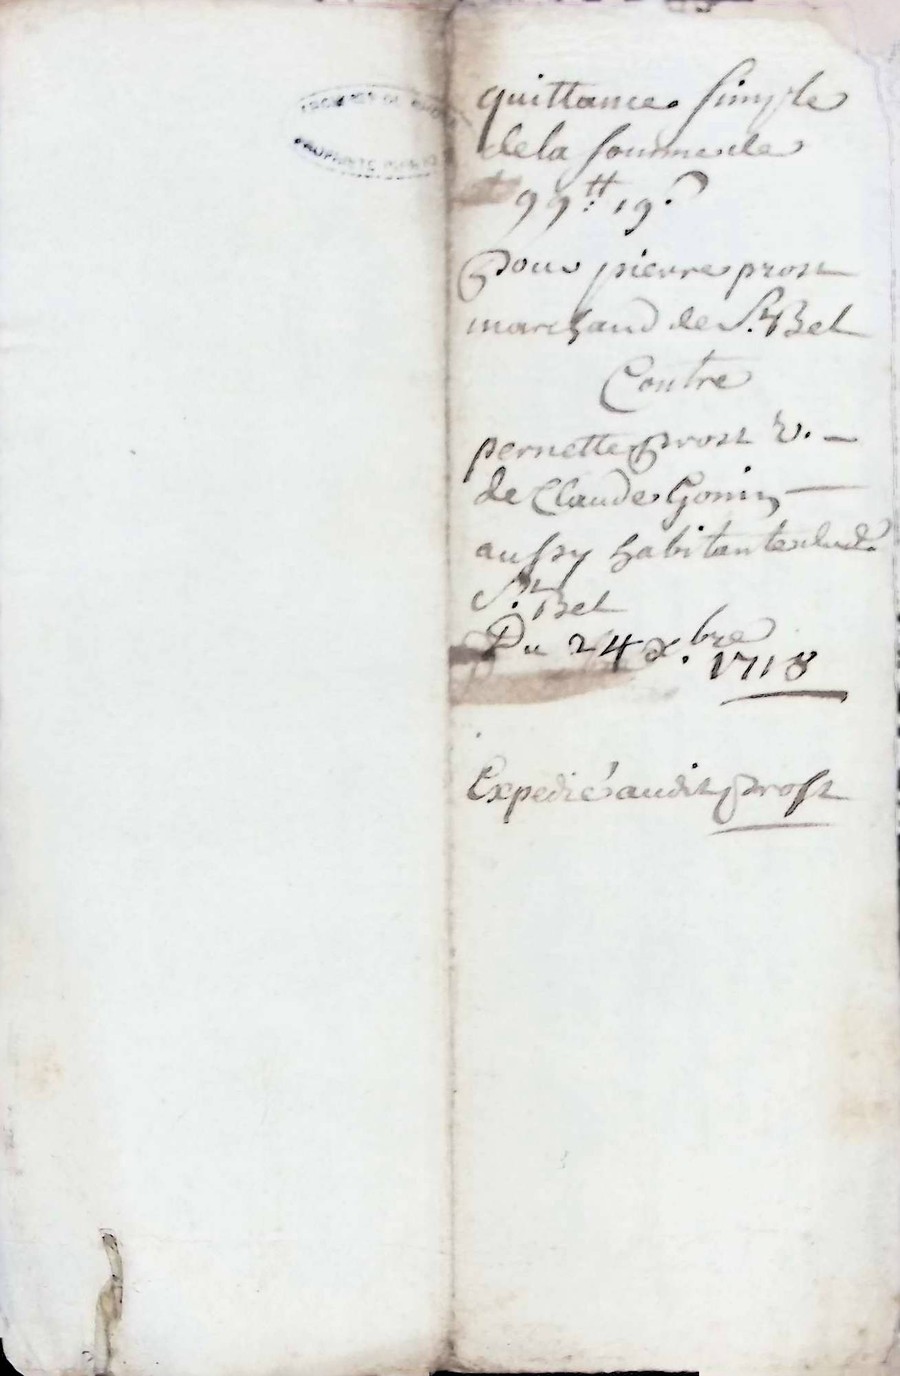 ARCHIVES DU RHÔNE
PROPRIÉTÉ PUBLIQUE
quittance simple
de la somme de
99ᵗᵗ: 19.ˢ
Pour pierre prost
marchand de S.ᵗ Bel
Contre
pernette prost v. —
de Claude Gonin —
aussy habitante dud.
S.ᵗ Bel
Du 24 x.bre
1718
Expedié audit prost